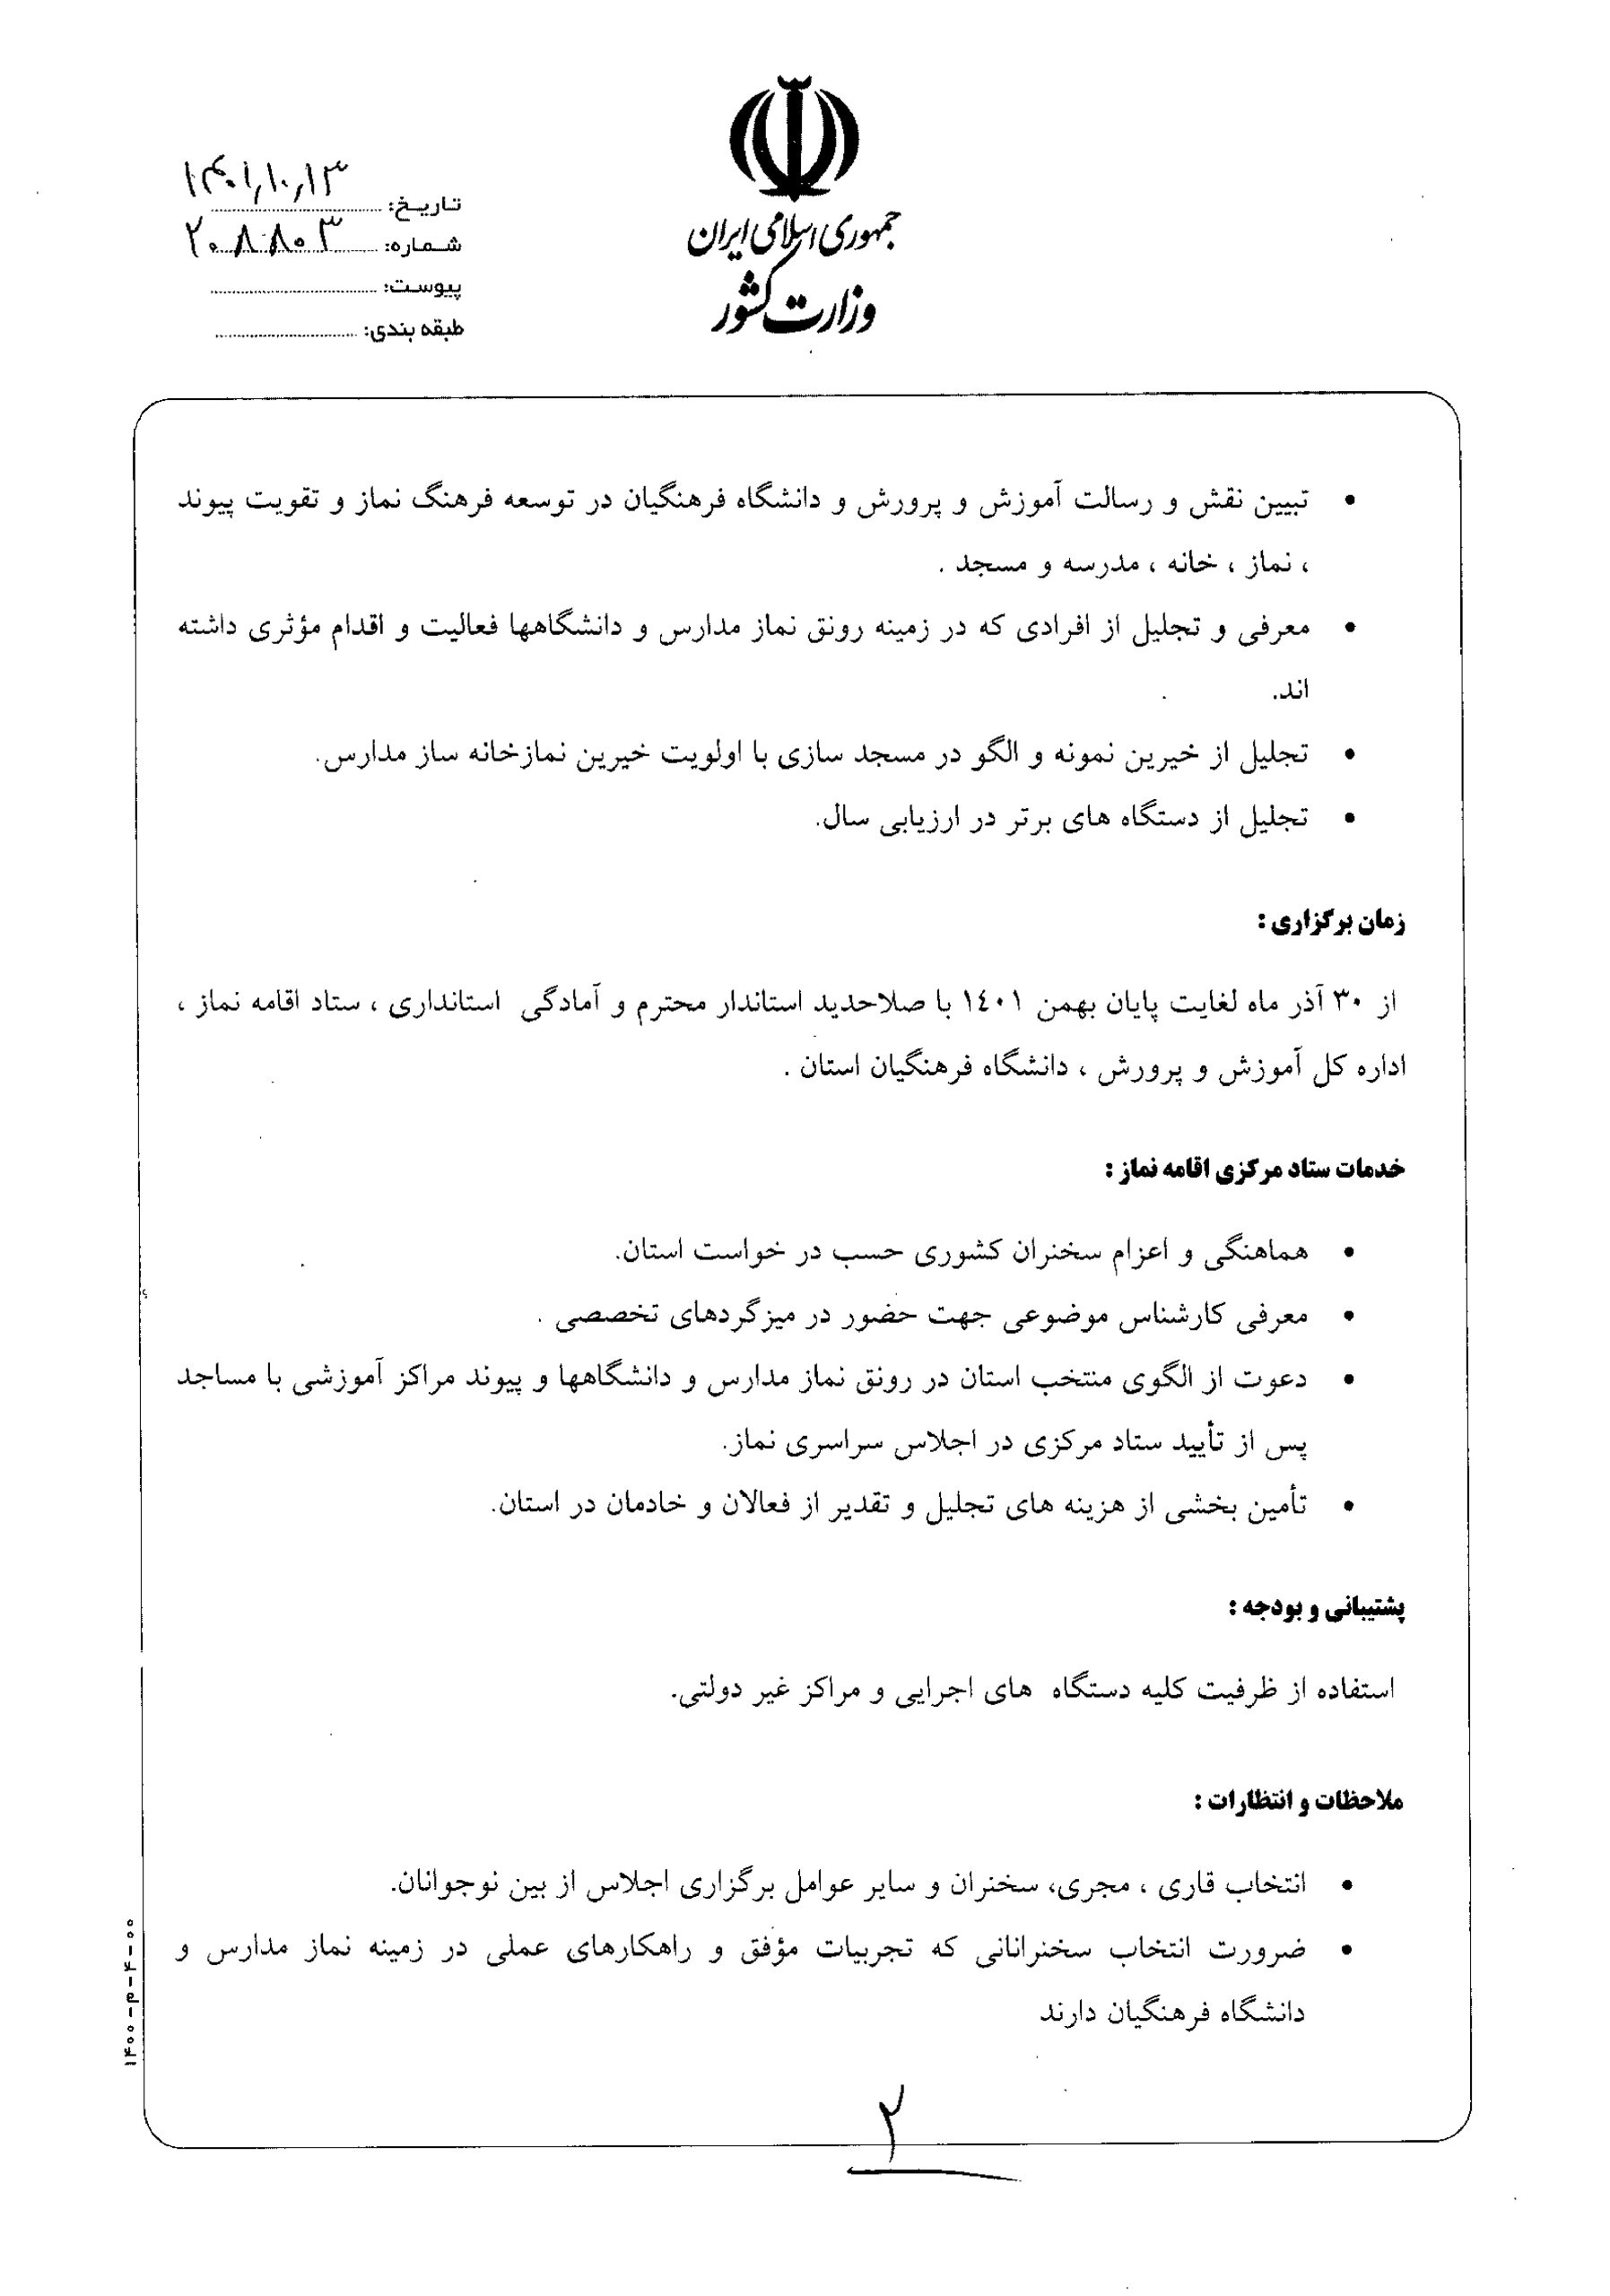 جمهوری اسلامی ایران
وزارت کشور
تاریخ: ۱۴۰۱,۱۰,۱۳
شماره: ۲۰۸۸۰۳
پیوست:
طبقه بندی:
• تبیین نقش و رسالت آموزش و پرورش و دانشگاه فرهنگیان در توسعه فرهنگ نماز و تقویت پیوند
، نماز ، خانه ، مدرسه و مسجد .
• معرفی و تجلیل از افرادی که در زمینه رونق نماز مدارس و دانشگاهها فعالیت و اقدام مؤثری داشته
اند.
• تجلیل از خیرین نمونه و الگو در مسجد سازی با اولویت خیرین نمازخانه ساز مدارس.
• تجلیل از دستگاه های برتر در ارزیابی سال.
زمان برگزاری :
از ۳۰ آذر ماه لغایت پایان بهمن ۱٤۰۱ با صلاحدید استاندار محترم و آمادگی استانداری ، ستاد اقامه نماز ،
اداره کل آموزش و پرورش ، دانشگاه فرهنگیان استان .
خدمات ستاد مرکزی اقامه نماز :
• هماهنگی و اعزام سخنران کشوری حسب در خواست استان.
• معرفی کارشناس موضوعی جهت حضور در میزگردهای تخصصی .
• دعوت از الگوی منتخب استان در رونق نماز مدارس و دانشگاهها و پیوند مراکز آموزشی با مساجد
پس از تأیید ستاد مرکزی در اجلاس سراسری نماز.
• تأمین بخشی از هزینه های تجلیل و تقدیر از فعالان و خادمان در استان.
پشتیبانی و بودجه :
استفاده از ظرفیت کلیه دستگاه های اجرایی و مراکز غیر دولتی.
ملاحظات و انتظارات :
• انتخاب قاری ، مجری، سخنران و سایر عوامل برگزاری اجلاس از بین نوجوانان.
• ضرورت انتخاب سخنرانانی که تجربیات مؤفق و راهکارهای عملی در زمینه نماز مدارس و
دانشگاه فرهنگیان دارند
۱۴۰۰-م-۴-۰۰
۲